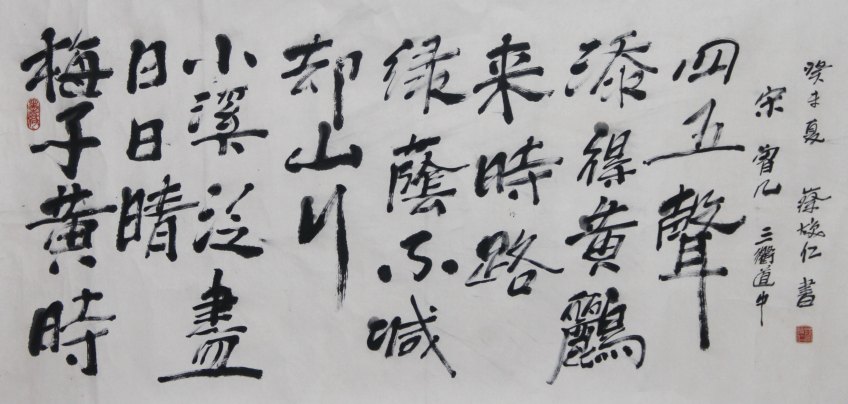 梅子黄時
日日晴
小溪泛盡
却山行
绿蔭不减
来時路
添得黄鸝
四五聲
宋 曾几 三衢道中
癸未夏 蔡仁書